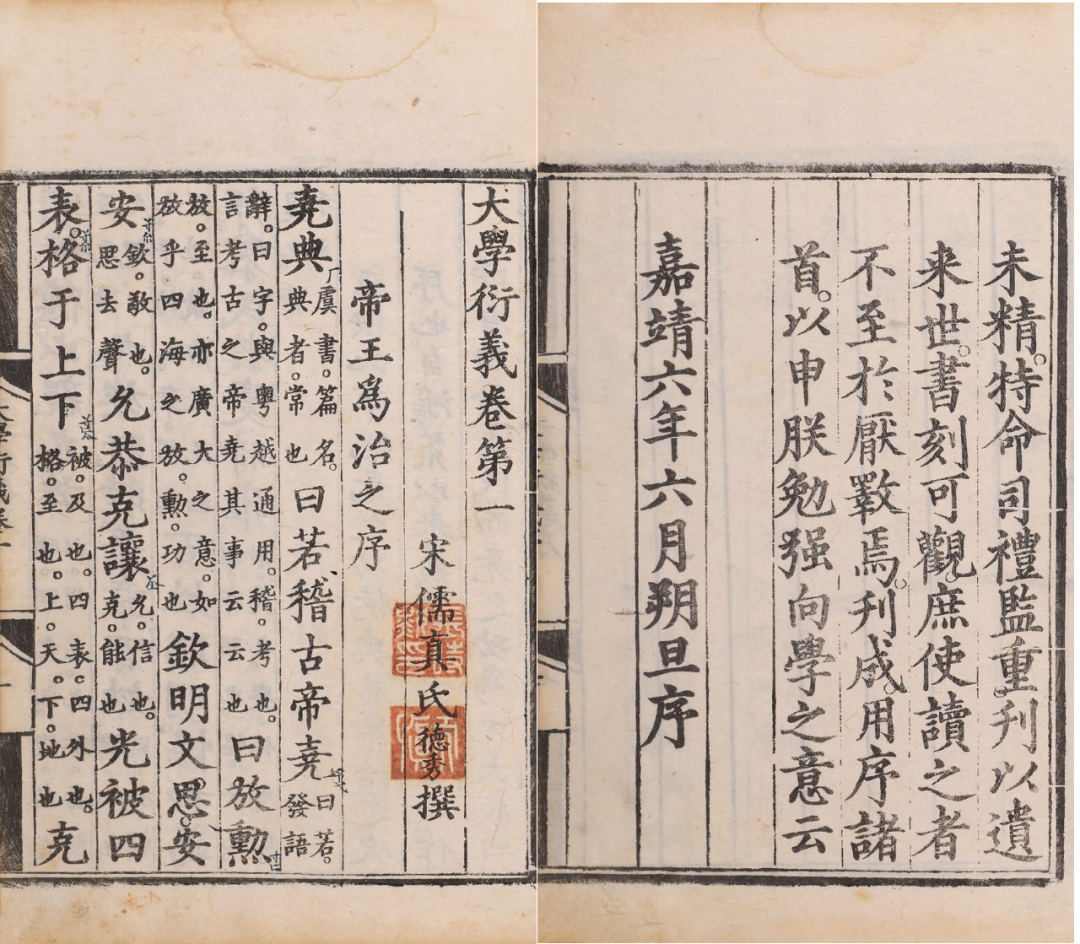 未精。特命司禮監重刊。以遺
来世。書刻可觀。庶使讀之者
不至於厭斁焉。刋成。用序諸
首。以申朕勉强向學之意云
嘉靖六年六月朔旦序
大學衍義卷第一
宋儒真氏德秀撰
帝王爲治之序
堯典虞書。篇名。典者。常也曰若稽古帝堯曰若。發語
辭。曰字。與粤越通用。稽。考也。言考古之帝堯其事云云也曰放勲
放。至也。亦廣大之意。如放乎四海之放。勲。功也欽明文思。安
安欽。敬也。思去聲允恭克讓允。信也。克。能也光被四
表。格于上下被。及也。四表。四外也。格。至也。上。天。下。地也克